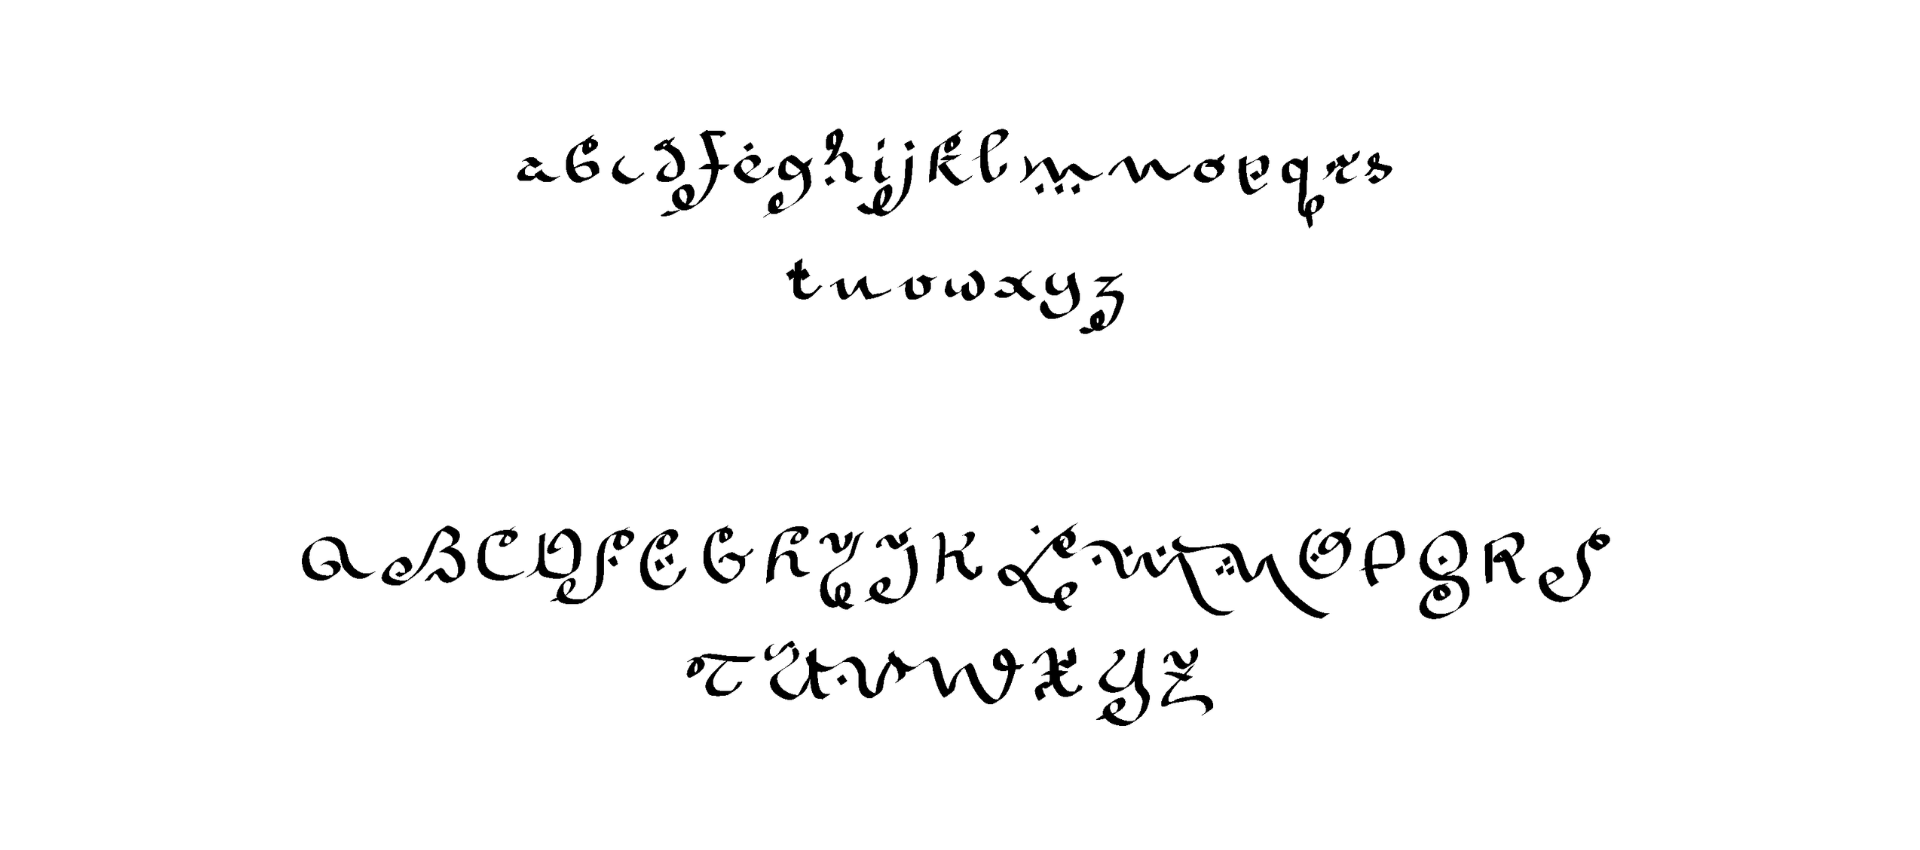 abcdfeghijklmnopqrs
tuvwxyz
ABCDFEGHIJKLMNOPQRS
TUVWXYZ